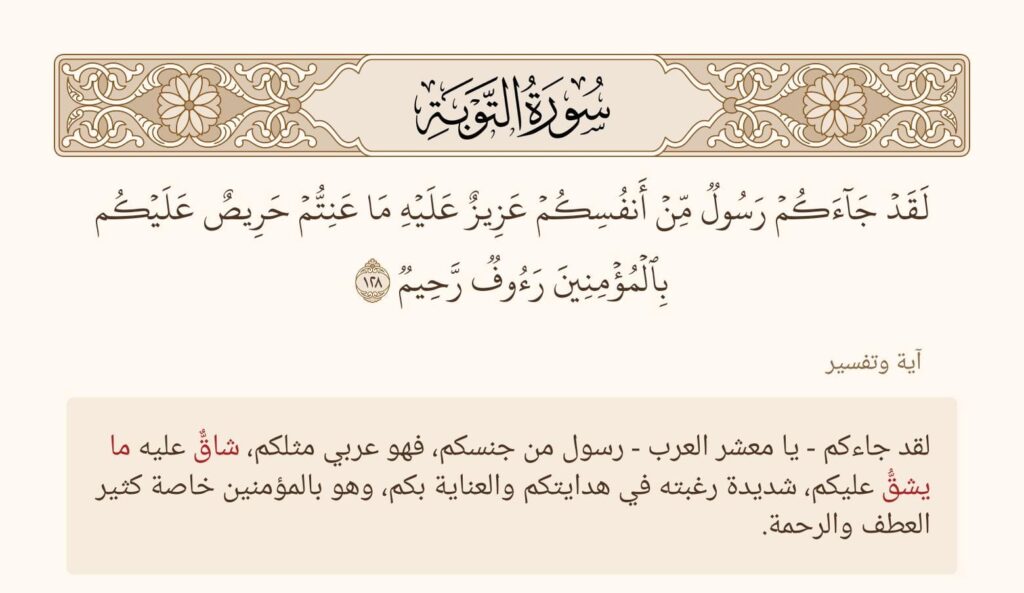 سُورَةُ التَّوۡبَةِ
لَقَدۡ جَآءَكُمۡ رَسُولٞ مِّنۡ أَنفُسِكُمۡ عَزِيزٌ عَلَيۡهِ مَا عَنِتُّمۡ حَرِيصٌ عَلَيۡكُم
بِٱلۡمُؤۡمِنِينَ رَءُوفٞ رَّحِيمٞ ١٢٨
آية وتفسير
لقد جاءكم - يا معشر العرب - رسول من جنسكم، فهو عربي مثلكم، شاقٌّ عليه ما
يشقُّ عليكم، شديدة رغبته في هدايتكم والعناية بكم، وهو بالمؤمنين خاصة كثير
العطف والرحمة.